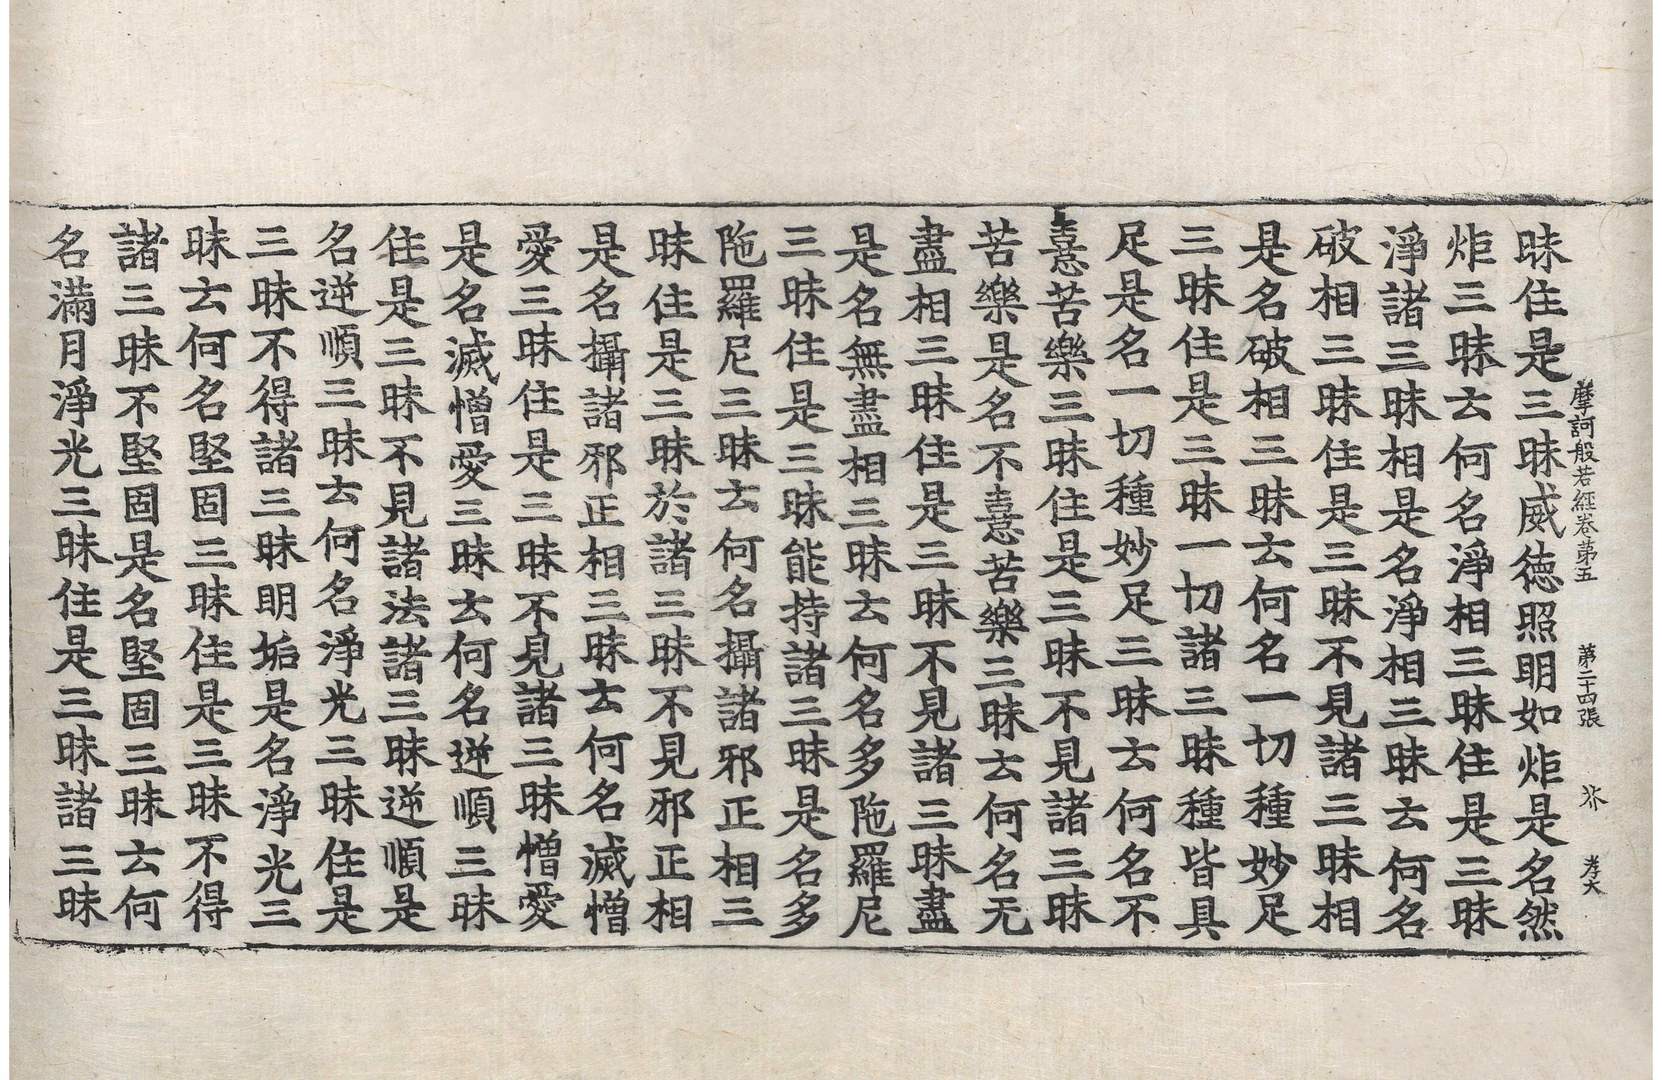 摩訶般若經卷第五　第二十四張　芥　孝大
昧住是三昧威徳照明如炬是名然
炬三昧云何名淨相三昧住是三昧
淨諸三昧相是名淨相三昧云何名
破相三昧住是三昧不見諸三昧相
是名破相三昧云何名一切種妙足
三昧住是三昧一切諸三昧種種皆具
足是名一切種妙足三昧云何名不
憙苦樂三昧住是三昧不見諸三昧
苦樂是名不憙苦樂三昧云何名无
盡相三昧住是三昧不見諸三昧盡
是名無盡相三昧云何名多陁羅尼
三昧住是三昧能持諸三昧是名多
陁羅尼三昧云何名攝諸邪正相三
昧住是三昧於諸三昧不見邪正相
是名攝諸邪正相三昧云何名滅憎
愛三昧住是三昧不見諸三昧憎愛
是名滅憎愛三昧云何名逆順三昧
住是三昧不見諸法諸三昧逆順是
名逆順三昧云何名淨光三昧住是
三昧不得諸三昧明垢是名淨光三
昧云何名堅固三昧住是三昧不得
諸三昧不堅固是名堅固三昧云何
名滿月淨光三昧住是三昧諸三昧